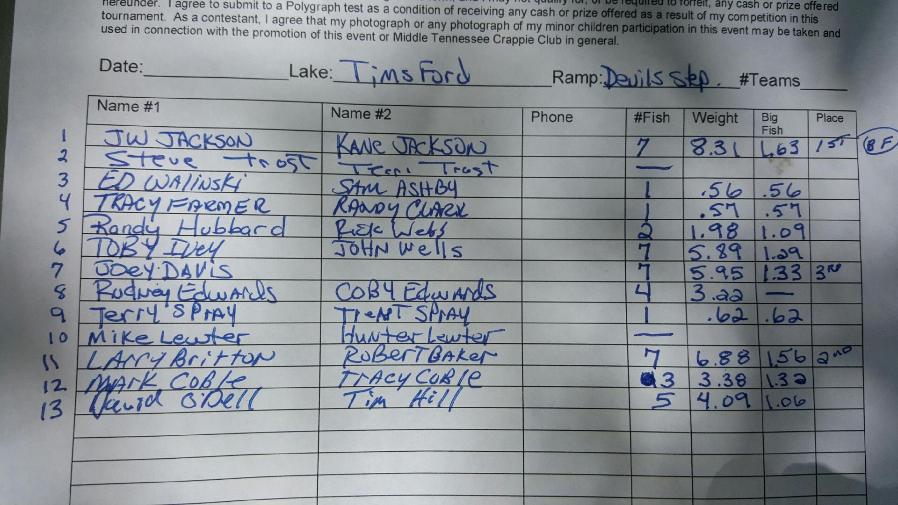 hereunder. I agree to submit to a Polygraph test as a condition of receiving any cash or prize offered as a result of my competition in this
tournament. As a contestant, I agree that my photograph or any photograph of my minor children participation in this event may be taken and
used in connection with the promotion of this event or Middle Tennessee Crappie Club in general.
Date: Lake: Tims Ford Ramp: Devils Step. #Teams
Name #1 Name #2 Phone #Fish Weight Big Fish Place
1 JW JACKSON KANE JACKSON 7 8.31 1.63 1st BF
2 Steve trost Terri Trost —
3 ED WALINSKI SAM ASHBY 1 .56 .56
4 TRACY FARMER RANDY CLARK 1 .57 .57
5 Randy Hubbard Rick Webb 2 1.98 1.09
6 TOBY IVEY JOHN Wells 7 5.89 1.29
7 JOEY DAVIS 7 5.95 1.33 3rd
8 Rodney Edwards COBY Edwards 4 3.22 —
9 Terry SPRAY TRENT SPRAY 1 .62 .62
10 Mike Lewter Hunter Lewter —
11 LARRY Britton ROBERT BAKER 7 6.88 1.56 2nd
12 MARK COBLE TRACY COBLE 3 3.38 1.32
13 David O'Dell Tim Hill 5 4.09 1.06